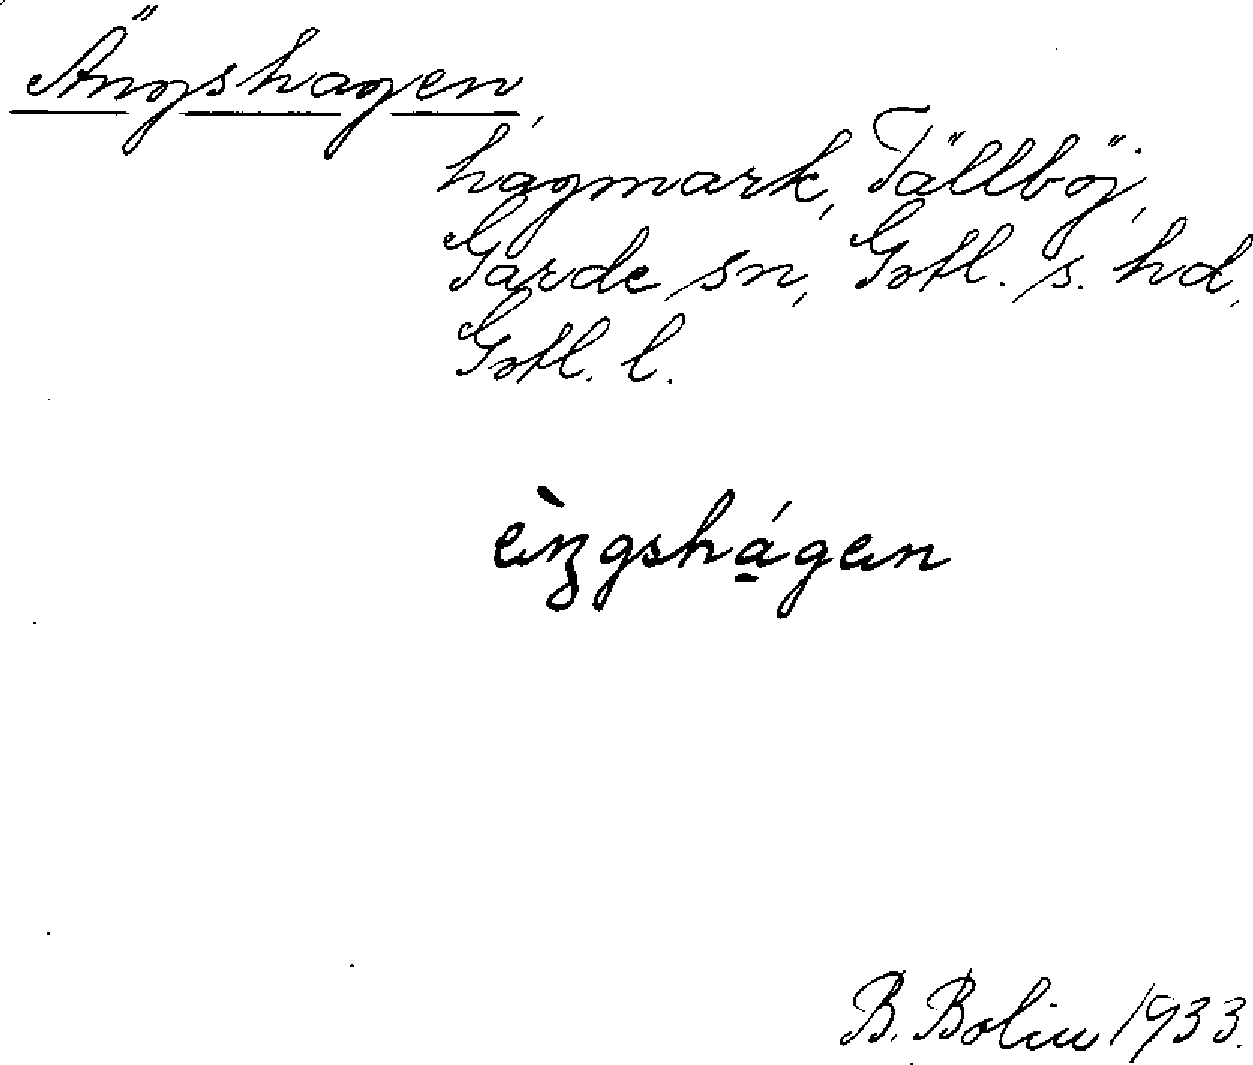 Ängshagen,
hagmark, Tällböj,
Garde sn, Gotl. s. hd,
Gotl. l.
B. Bolin 1933.